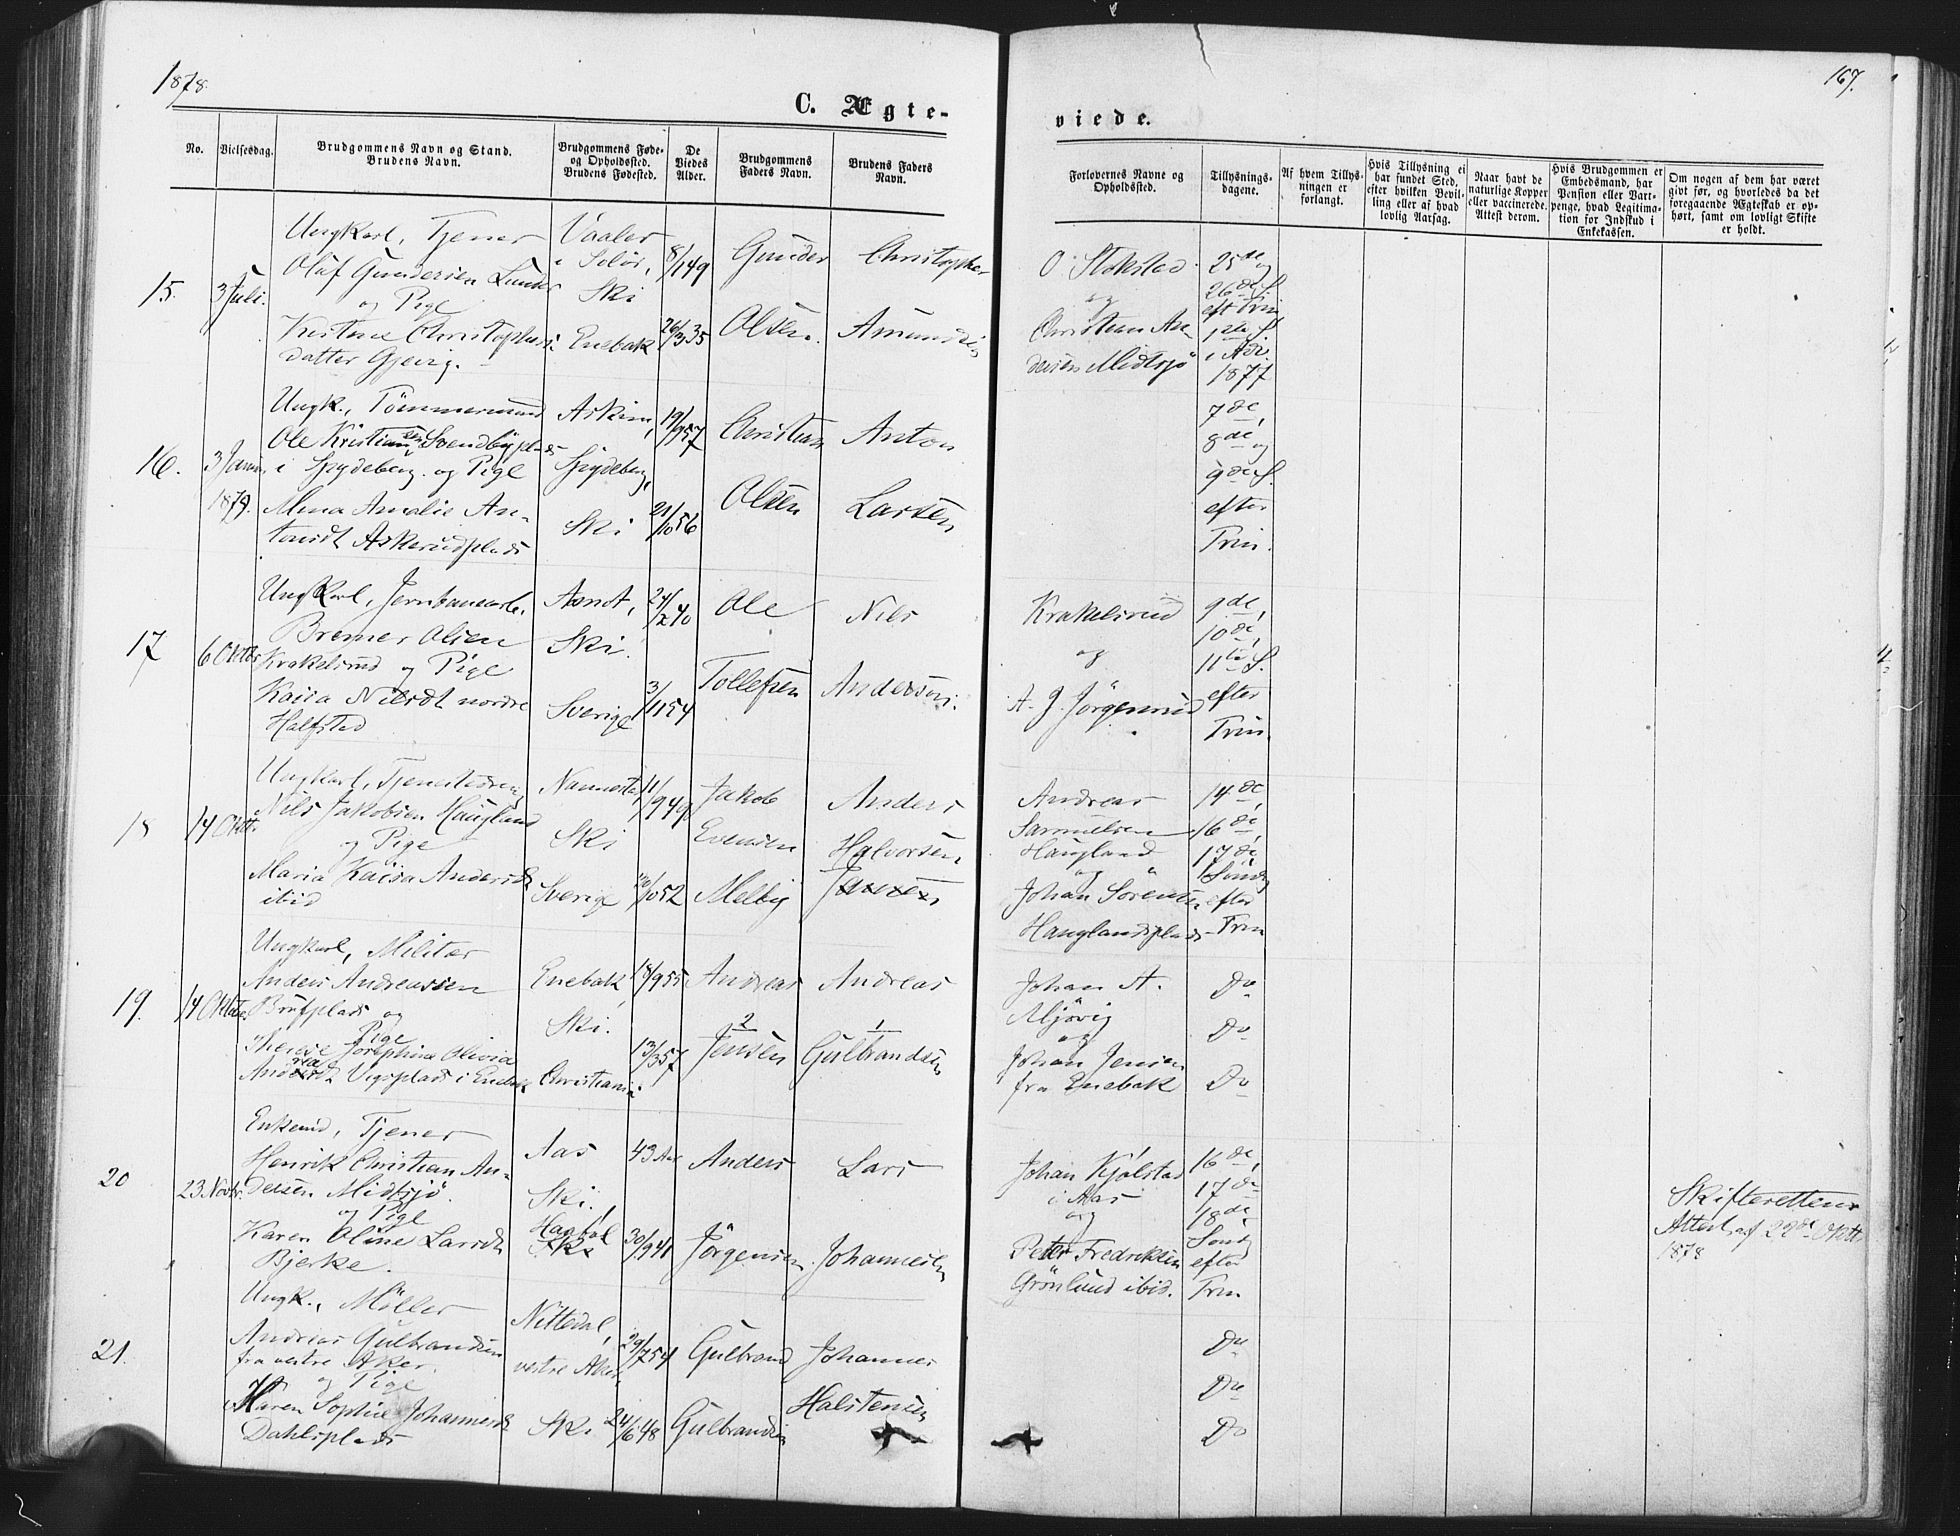 1878.
167.
C. Ægte-
viede.
No.
Vielsesdag.
Brudgommens Navn og Stand.
Brudens Navn.
Brudgommens Føde-
og Opholdssted.
Brudens Fødested.
De
Viedes
Alder.
Brudgommens
Faders Navn.
Brudens Faders
Navn.
Forlovernes Navne og
Opholdssted.
Tillysnings-
dagene.
Af hvem Tillys-
ningen er
forlangt.
Hvis Tillysning ei
har fundet Sted,
efter hvilken Bevil-
ling eller af hvad
lovlig Aarsag.
Naar havt de
naturlige Kopper
eller vaccinerede.
Attest derom.
Hvis Brudgommen er
Embedsmand, har
Pension eller Vart-
penge, hvad Legitima-
tion for Indskud i
Enkekassen.
Om nogen af dem har været
givt før, og hvorledes da det
foregaaende Ægteskab er op-
hørt, samt om lovligt Skifte
er holdt.
15.
3 Juli.
Ungkarl, Tjener
Olaf Gundersen Lunder
og Pige
Kristine Christophers-
datter Gjevig.
Vaaler
i Solør,
Ski
Enebak
8/1 49
26/3 35
Gunder
Olsen.
Christopher
Amundsen
O. Stokstad
og
Christian An-
dersen Midtsjö
25de og
26de S.
eft Trin
1ste S.
i Adv.
1877
16.
3 Janu.
1879.
Ungk., Tömmermand
Ole Kristiansen Svendbyplads
i Spydeberg. og Pige
Mina Amalie An-
tonsdt Askerudplads
Askim,
Spydeberg,
Ski
19/9 57
21/10 56
Christian
Olsen
Anton
Larsen
7de,
8de og
9de S.
efter
Trin.
17
6 Oktbr
Ungkarl, Jernbanearb.
Bremer Olsen
Krakelsrud og Pige
Kaisa Nilsdt nordre
Halfstad
Asnot,
Ski.
Sverige
24/2 40
3/11 54
Ole
Tollefsen
Nils
Anderson.
Krakelsrud
og
A. J. Jörgensrud
9de,
10de,
11te S.
efter
Trin.
18
14 Oktb.
Ungkarl, Tjenestedreng
Nils Jakobsen Haugland
og Pige
Maria Kaisa Andersdt
ibid
Nannestad,
Ski
Sverige
11/9 49
/10 52
Jakob
Evensen
Melby
Anders
Halvorsen
Andreas
Samuelsen
Haugland
og
Johan Sorensen
Hauglandsplads
14de,
16de,
17de
Sönd
efter
Trin
19.
14 Oktbr
Ungkarl, Militær
Anders Andreassen
Brufplads og
Pige
Therese Josephina Olivia
Andreasdt Vigsplads i Enebak
Enebak,
Ski.
Christiania.
18/9 55
13/3 57
Andreas
2
Jensen
Andreas
1
Gulbrandsen
Johan A.
Mjövig
og
Johan Jensen
fra Enebak
Do
Do
Do
20
23 Novbr.
Enkemd, Tjener
Henrik Christian An-
dersen Midtsjö.
og Pige
Karen Oline Larsdt
Bjerke.
Aas
Ski,
Hagtal
Ski
43 Aar
30/9 41
Anders
Jörgensen.
Lars
Johannesen
Johan Kjölstad
i Aas
og
Peter Fredriksen
Grönlund ibid.
16de,
17de
18de
Sond
efter
Trin
Skifterettens
Attest af 22de Oktb.
1878
21.
Ungk., Möller
Andreas Gulbrandsen
fra vestre Aker.
og Pige
Maren Sophie Johannesdt
Dahlsplads
Nittedal,
vestre Aker.
Ski
29/7 54
24/6 48
Gulbrand
Gulbrandsen
Johannes
Halstensen
Do
Do
Do